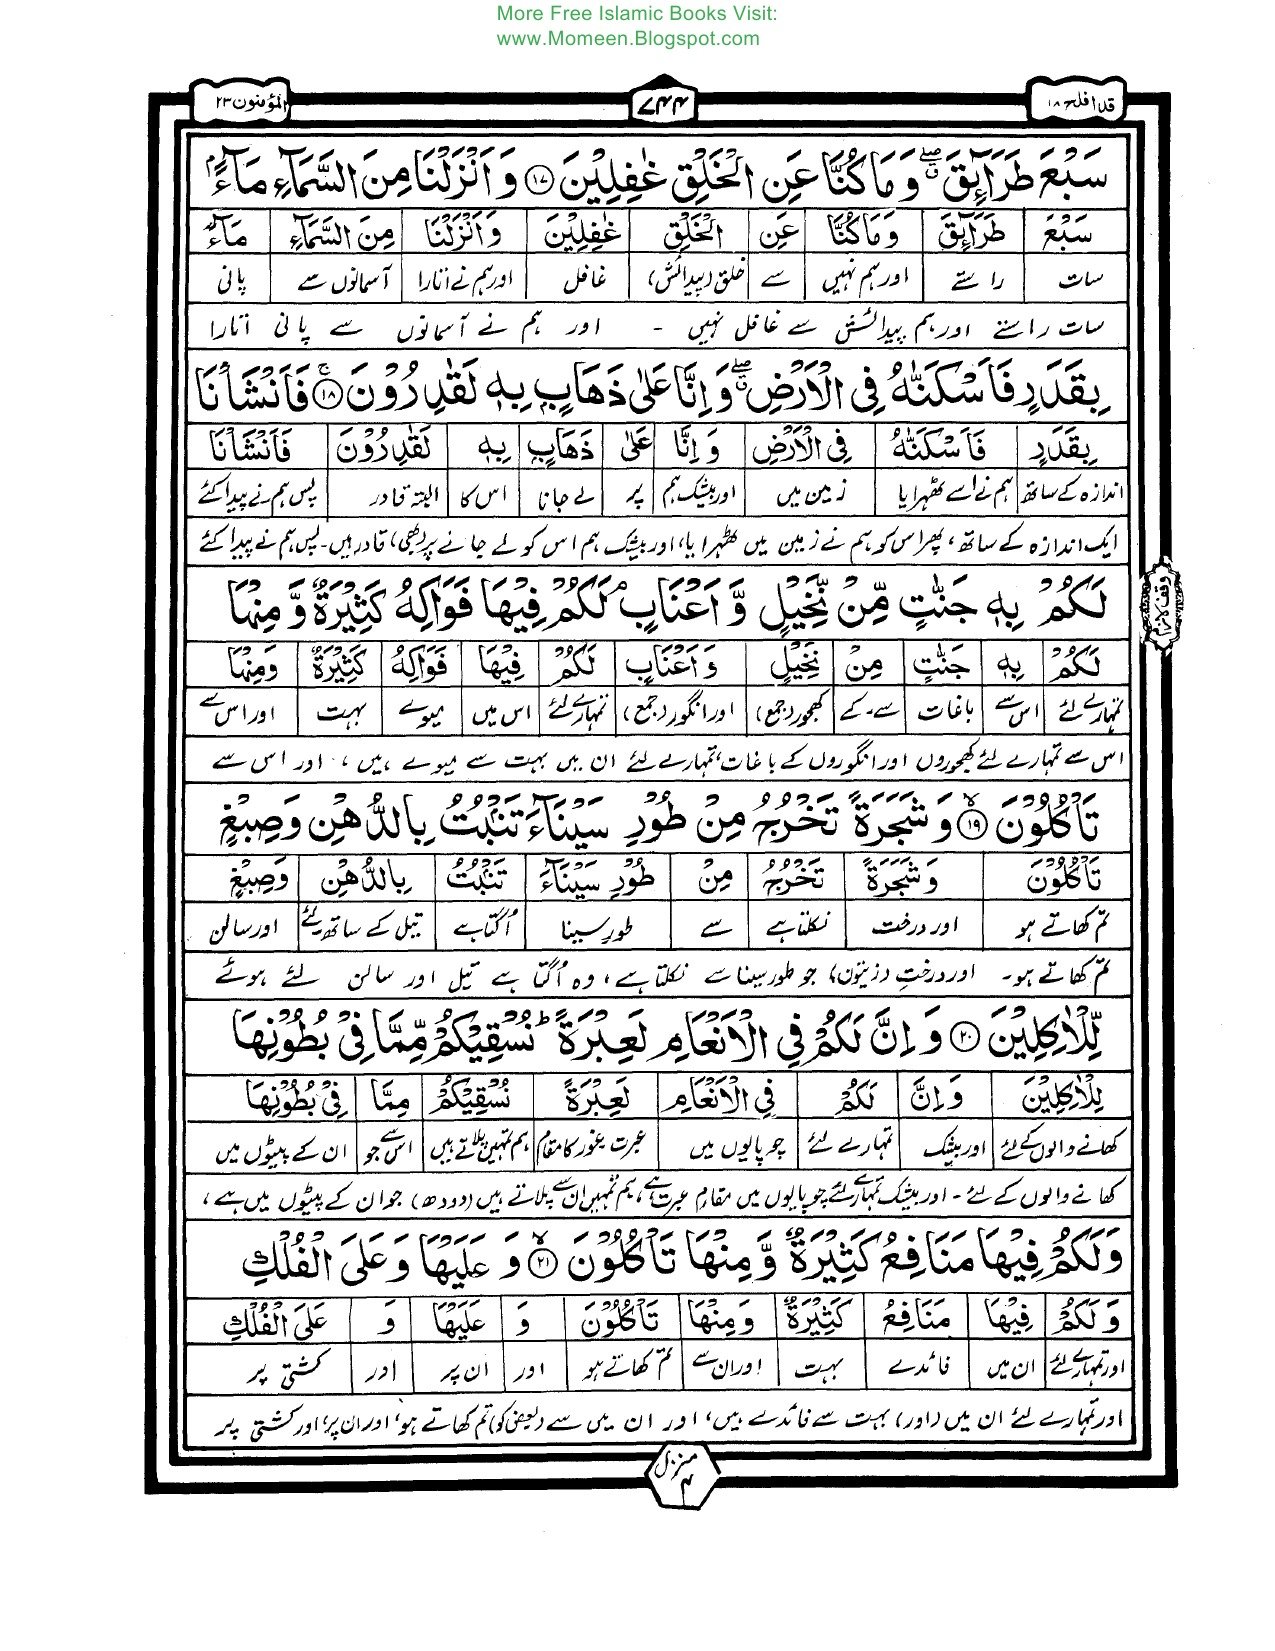 More Free Islamic Books Visit:
www.Momeen.Blogspot.com
قد افلح ۱۸ ۷۴۴ المؤمنون ۲۳
سَبْعَ طَرَآئِقَ ۖ وَمَا كُنَّا عَنِ الْخَلْقِ غٰفِلِيْنَ ۱۷ وَاَنْزَلْنَا مِنَ السَّمَآءِ مَآءًۢ
سَبْعَ طَرَآئِقَ وَمَا كُنَّا عَنِ الْخَلْقِ غٰفِلِيْنَ وَاَنْزَلْنَا مِنَ السَّمَآءِ مَآءً
سات راستے اور ہم نہیں سے خلق (پیدائش) غافل اور ہم نے اتارا آسمانوں سے پانی
سات راستے اور ہم پیدائش سے غافل نہیں - اور ہم نے آسمانوں سے پانی اتارا
بِقَدَرٍ فَاَسْكَنّٰهُ فِى الْاَرْضِ ۖ وَاِنَّا عَلٰى ذَهَابٍۭ بِهٖ لَقٰدِرُوْنَ ۱۸ ۚ فَاَنْشَاْنَا
بِقَدَرٍ فَاَسْكَنّٰهُ فِى الْاَرْضِ وَاِنَّا عَلٰى ذَهَابٍۭ بِهٖ لَقٰدِرُوْنَ فَاَنْشَاْنَا
اندازہ کے ساتھ ہم نے اسے ٹھہرایا زمین میں اور بیشک ہم پر لے جانا اس کا البتہ قادر پس ہم نے پیدا کئے
ایک اندازہ کے ساتھ، پھر اس کو ہم نے زمین میں ٹھہرایا، اور بیشک ہم اس کو لے جانے پر (بھی) قادر ہیں۔ پس ہم نے پیدا کئے
لَكُمْ بِهٖ جَنّٰتٍ مِّنْ نَّخِيْلٍ وَّاَعْنَابٍ ۘ لَكُمْ فِيْهَا فَوَاكِهُ كَثِيْرَةٌ وَّمِنْهَا
لَكُمْ بِهٖ جَنّٰتٍ مِنْ نَّخِيْلٍ وَاَعْنَابٍ لَكُمْ فِيْهَا فَوَاكِهُ كَثِيْرَةٌ وَمِنْهَا
تمہارے لئے اس سے باغات سے۔کے کھجور (جمع) اور انگور (جمع) تمہارے لئے اس میں میوے بہت اور اس سے
اس سے تمہارے لئے کھجوروں اور انگوروں کے باغات، تمہارے لئے ان میں بہت سے میوے ہیں، اور اس سے
وقف لازم
تَاْكُلُوْنَ ۱۹ ۙ وَشَجَرَةً تَخْرُجُ مِنْ طُوْرِ سَيْنَآءَ تَنْۢبُتُ بِالدُّهْنِ وَصِبْغٍ
تَاْكُلُوْنَ وَشَجَرَةً تَخْرُجُ مِنْ طُوْرِ سَيْنَآءَ تَنْۢبُتُ بِالدُّهْنِ وَصِبْغٍ
تم کھاتے ہو اور درخت نکلتا ہے سے طور سینا اُگتا ہے تیل کے ساتھ لئے اور سالن
تم کھاتے ہو۔ اور درخت (زیتون) جو طور سینا سے نکلتا ہے، وہ اُگتا ہے تیل اور سالن لئے ہوئے
لِّلْاٰكِلِيْنَ ۲۰ وَاِنَّ لَكُمْ فِى الْاَنْعَامِ لَعِبْرَةً ؕ نُسْقِيْكُمْ مِّمَّا فِىْ بُطُوْنِهَا
لِلْاٰكِلِيْنَ وَاِنَّ لَكُمْ فِى الْاَنْعَامِ لَعِبْرَةً نُسْقِيْكُمْ مِمَّا فِىْ بُطُوْنِهَا
کھانے والوں کے لئے اور بیشک تمہارے لئے چوپایوں میں عبرت غور کا مقام ہم تمہیں پلاتے ہیں اس سے جو ان کے پیٹوں میں
کھانے والوں کے لئے - اور بیشک تمہارے لئے چوپایوں میں مقام عبرت ہے، ہم تمہیں ان سے پلاتے ہیں (دودھ) جو ان کے پیٹوں میں ہے،
وَلَكُمْ فِيْهَا مَنَافِعُ كَثِيْرَةٌ وَّمِنْهَا تَاْكُلُوْنَ ۲۱ ۙ وَعَلَيْهَا وَعَلَى الْفُلْكِ
وَلَكُمْ فِيْهَا مَنَافِعُ كَثِيْرَةٌ وَمِنْهَا تَاْكُلُوْنَ وَ عَلَيْهَا وَ عَلَى الْفُلْكِ
اور تمہارے لئے ان میں فائدے بہت اور ان سے تم کھاتے ہو اور ان پر اور کشتی پر
اور تمہارے لئے ان میں (اور) بہت سے فائدے ہیں، اور ان میں سے (بعض کو) تم کھاتے ہو، اور ان پر، اور کشتی پر
منزل ۴